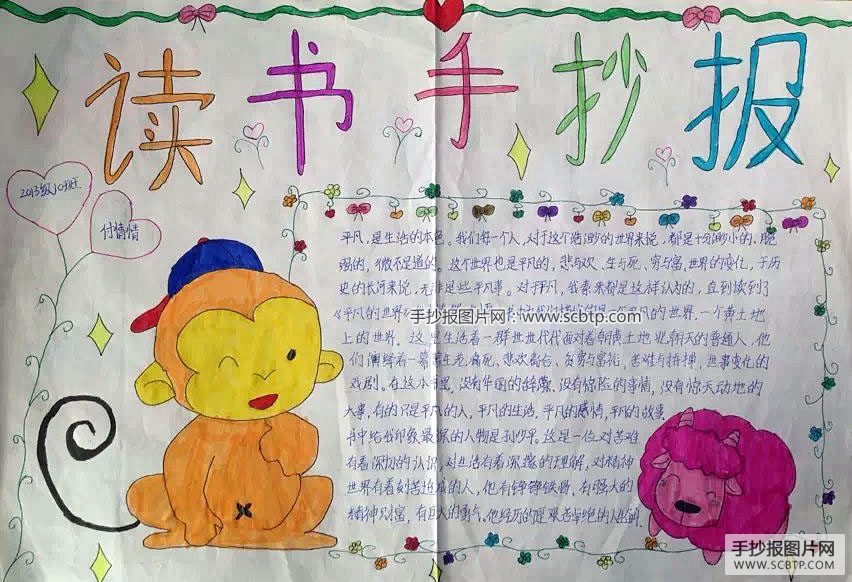 读书手抄报
2013级10班
付情情
平凡,是生活的本色。我们每一个人,对于这个浩渺的世界来说,都是十分渺小的、脆
弱的,微不足道的。这个世界也是平凡的,悲与欢、生与死、穷与富,世界的变化,于历
史的长河来说,无非是些平凡事。对于平凡,我素来都是这样认为的,直到读到了
《平凡的世界 平凡的世界.一个黄土地
手抄报图片网:www.scbtp.com
上的世界。这里生活着一群世世代代面对着朝黄土地业朝天的普通人,他
们演绎着一幕 生老病死、悲欢离合、贫穷与富裕,苦难与拼搏,世事变化的
戏剧。在这本书里,没有华丽的辞藻、没有惊险的事情,没有惊天动地的
大事,有的只是平凡的人,平凡的生活,平凡的感情,平凡的故事
书中给我印象最深的人物是孙少平。这是一位对苦难
有着深切的认识,对生活有着深邃的理解,对精神
世界有着刻苦追求的人,他有铮铮铁骨,有强大的
精神财富,有巨大的勇气。他经历的是艰苦卓绝的人生
手抄报图片网
WWW.SCBTP.COM